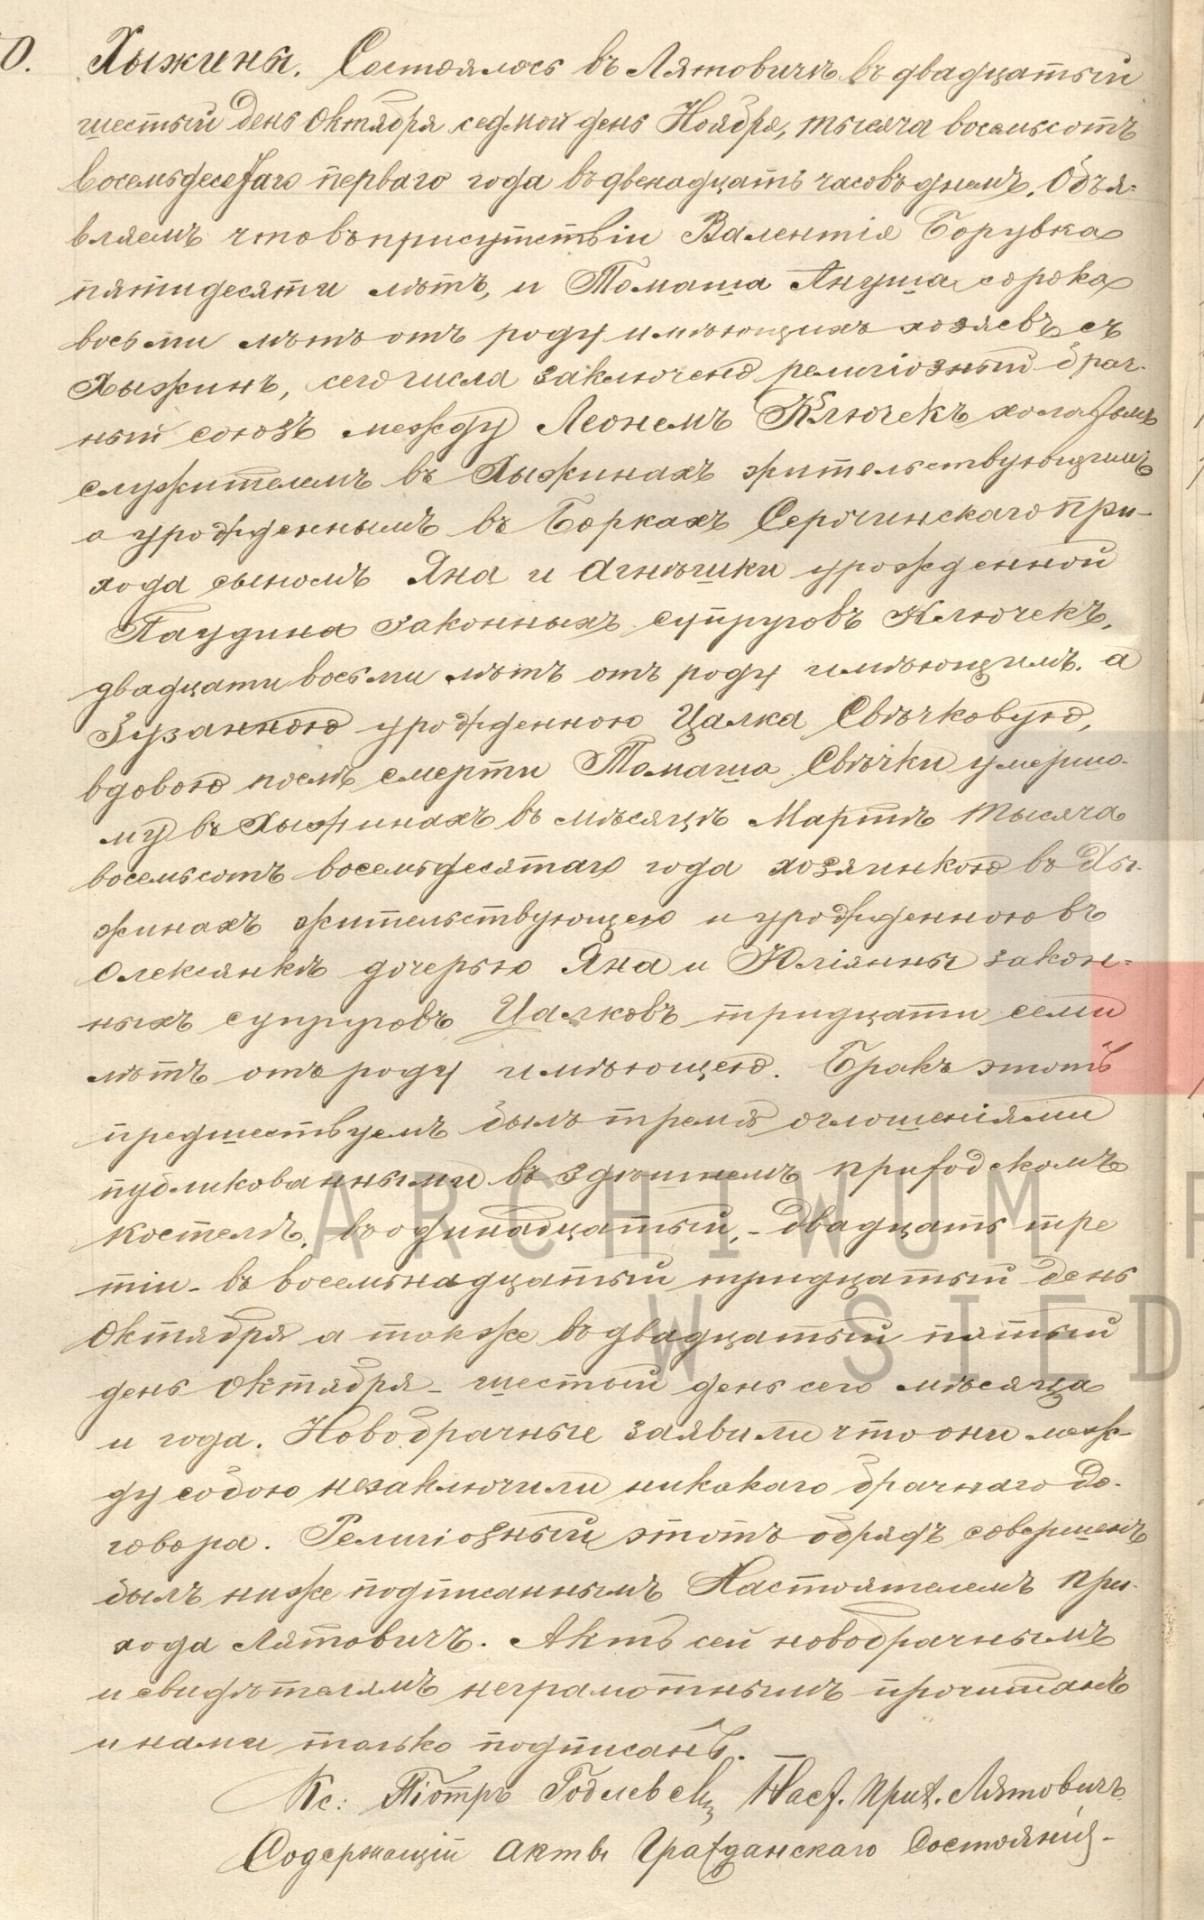 0. Хыжины. Состоялось въ Лятовичѣ въ двадцатый
шестый день Октября седмой день Ноября, тысяча восемьсотъ
восемьдесятаго перваго года въ двенадцать часовъ днемъ. Объя-
вляемъ что въ присутствіи Валентія Борувка
пятидесяти лѣтъ, и Томаша Ануша сорока
восьми лѣтъ отъ роду имѣющихъ хозяевъ съ
Хыжинъ, сего числа заключенъ религіозный брач-
ный союзъ между Леонемъ Ключекъ холостымъ
служителемъ въ Хыжинахъ жительствующимъ
а урожденнымъ въ Боркахъ Серочинскаго при-
хода сыномъ Яна и Агнѣшки урожденной
Паудина законныхъ супруговъ Ключекъ,
двадцати восьми лѣтъ отъ роду имѣющимъ. а
Зузанною урожденною Цалка Свѣчковую,
вдовою послѣ смерти Томаша Свѣчки умершо-
му въ Хыжинахъ въ мѣсяцѣ Мартѣ тысяча
восемьсотъ восемьдесятаго года хозяинкою въ Хы-
жинахъ жительствующею и урожденною въ
Олексянкѣ дочерью Яна и Юліянны закон-
ныхъ супруговъ Цалковъ тридцати семи
лѣтъ отъ роду имѣющею. Бракъ этотъ
предшествуемъ былъ тремя оглошеніями
публикованными въ здѣшнемъ приходскомъ
костелѣ, въ одинадцатый, - двадцать тре
тіи - въ восемьнадцатый тридцатый день
Октября а также въ двадцатый пятый
день Октября - шестый день сего мѣсяца
и года. Новобрачные заявили что они меж-
ду собою незаключили никакаго брачнаго до-
говора. Религіозный этотъ обрядъ совершенъ
былъ ниже подписаннымъ Настоятелемъ при-
хода Лятовичъ. Актъ сей новобрачнымъ
и свидѣтелямъ неграмотнымъ прочитанъ
и нами только подписанъ.
Кс: Піотръ Годлевскі Наст. Прих. Лятовичъ
Содержащій Акты Гражданскаго Состоянія -
ARCHIWUM P
W SIED